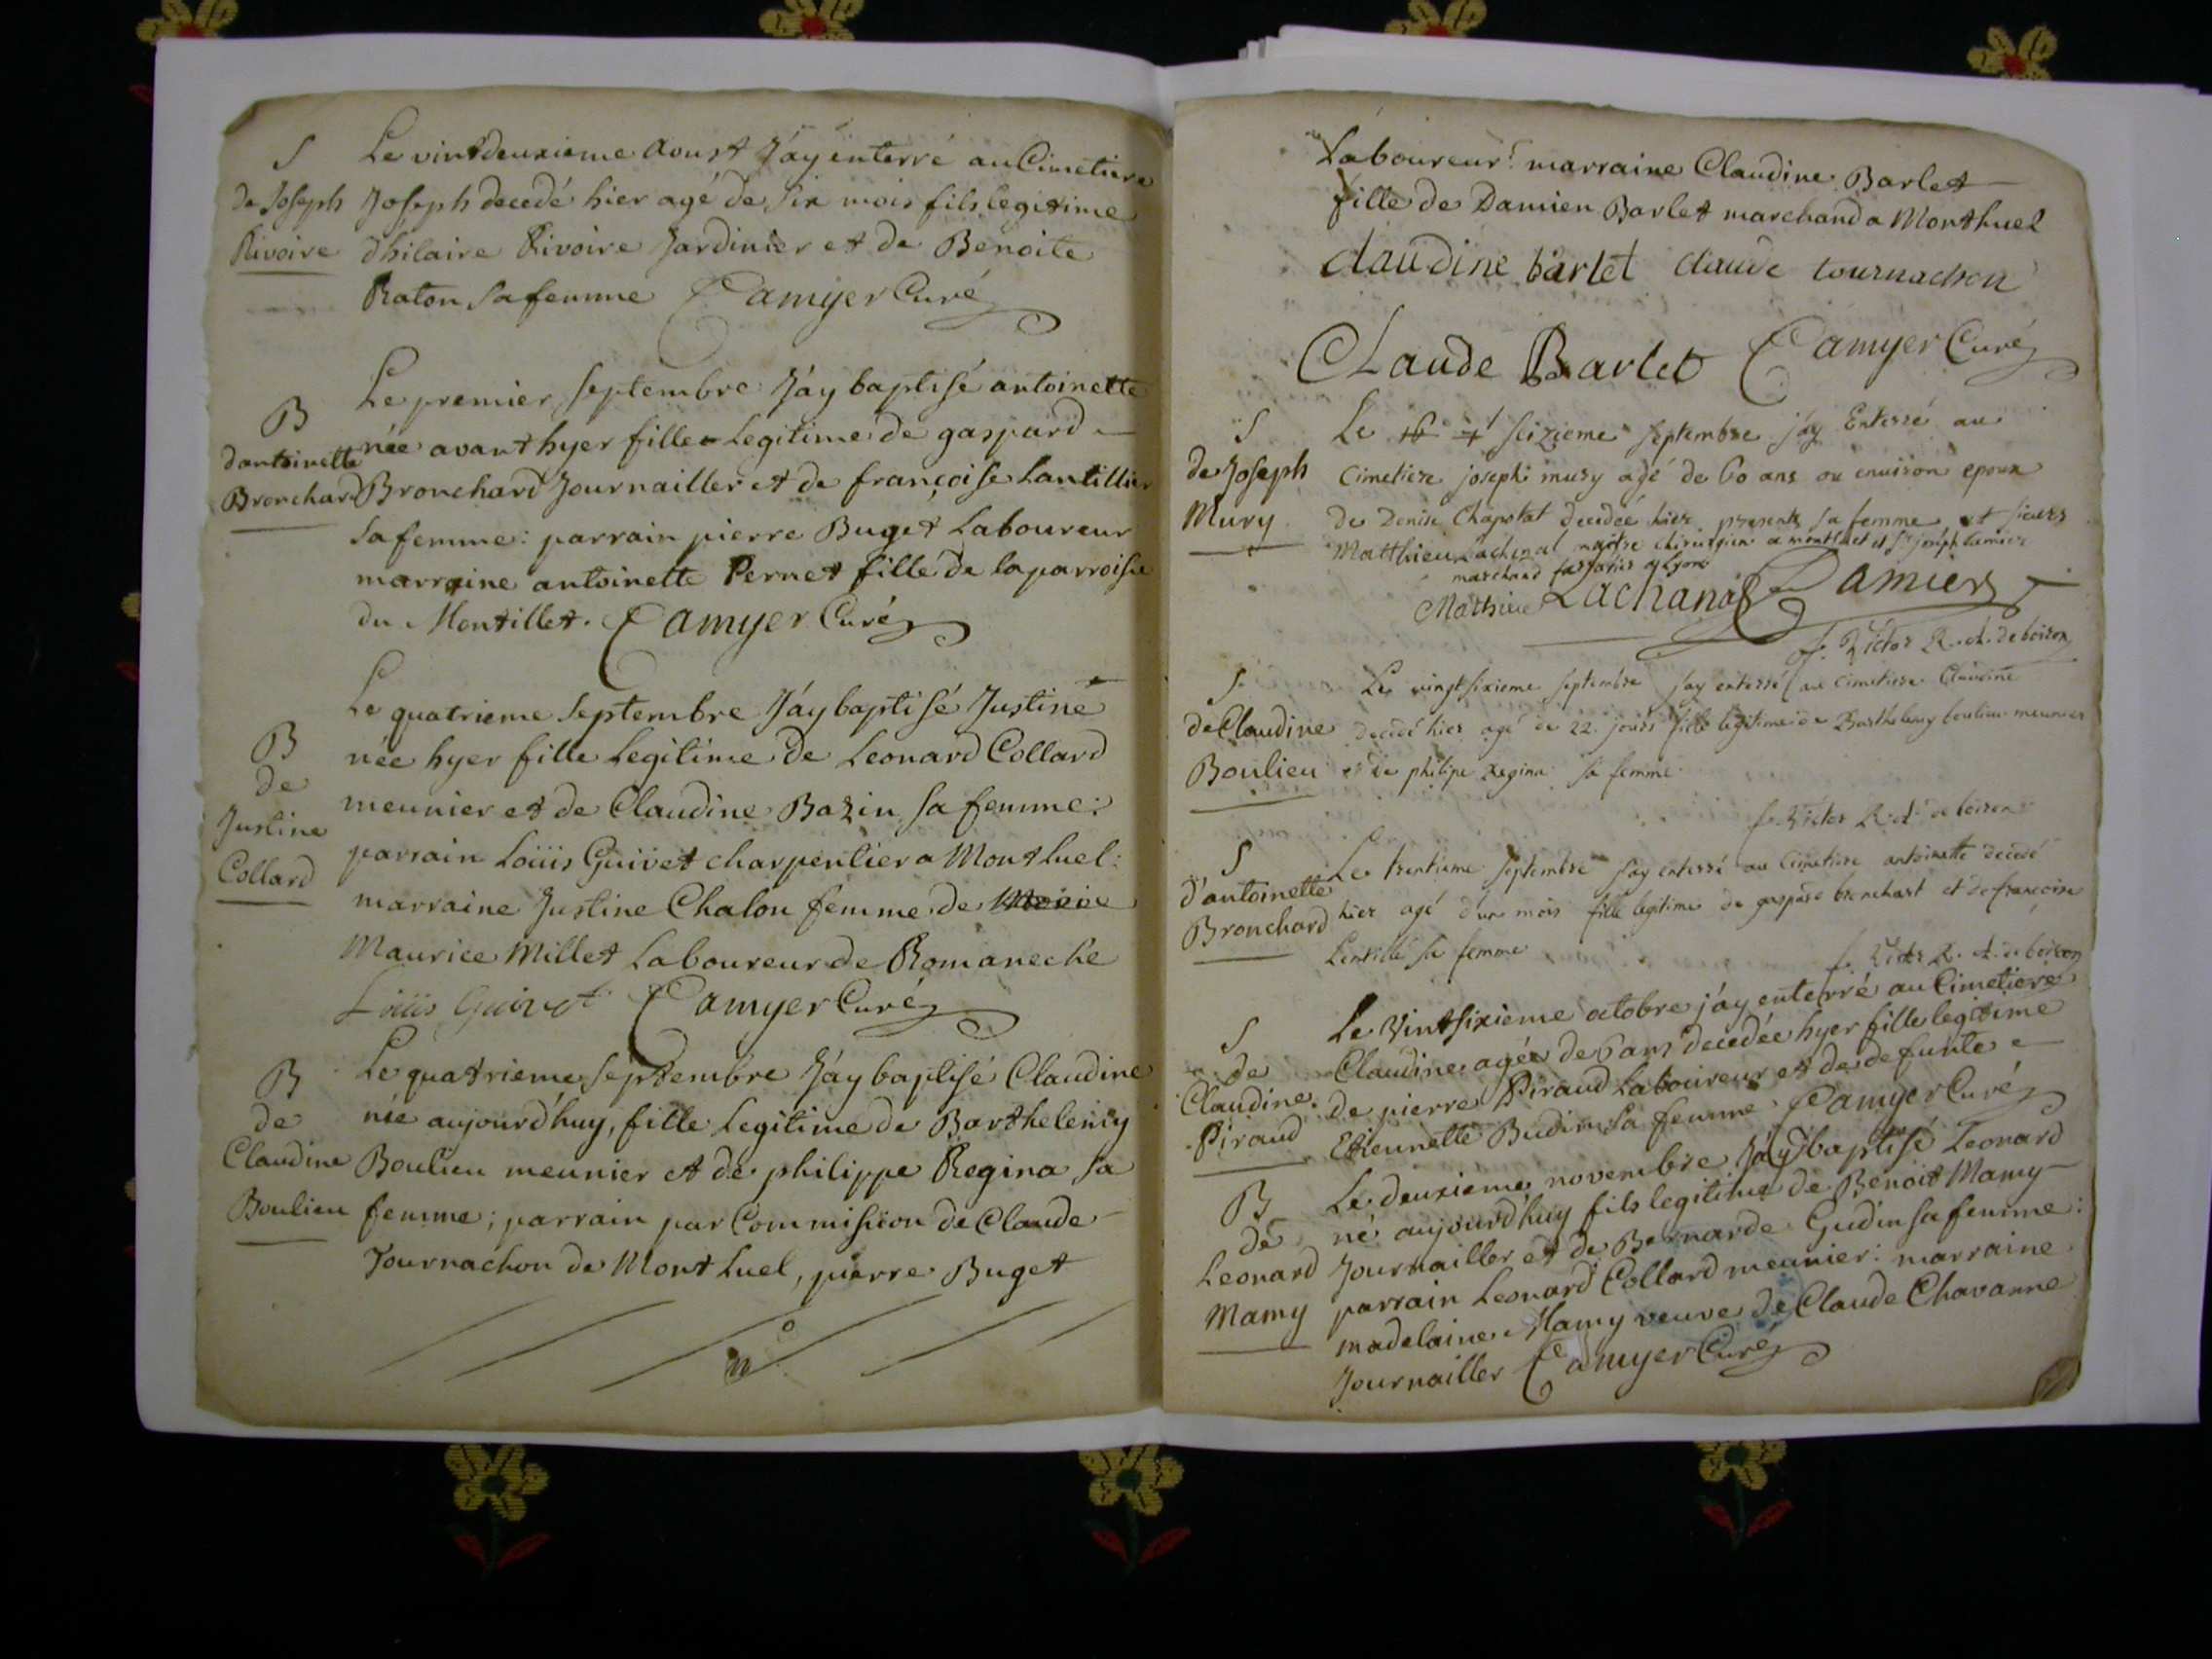 S
de Joseph
Rivoire
Le vint deuxieme Aoust J'áy enterré au Cimetiere
Joseph decedé hier agé de six mois fils legitime
d'hilaire Rivoire Jardinier et de Benoite
Raton sa femme Camyer Curé
B
d'antoinette
Bronchard
Le premier septembre J'áy baptisé antoinette
née avant hyer fille legitime de gaspard
Bronchard Journaillier et de françoise Lantillier
sa femme: parrain pierre Buget Laboureur
marraine antoinette Pernet fille de la parroisse
du Montillet. Camyer Curé
B
de
Justine
Collard
Le quatrieme septembre J'áy baptisé Justine
née hyer fille legitime de Leonard Collard
meunier et de Claudine Bazin sa femme:
parrain Loüis Guivet charpentier a Montluel:
marraine Justine Chalon femme de
Maurice Millet Laboureur de Romaneche
Loüis Guivet Camyer Curé
B
de
Claudine
Boulieu
Le quatrieme septembre J'áy baptisé Claudine
née aujourd'huy, fille legitime de Barthelemy
Boulieu meunier et de philippe Regina sa
femme; parrain par Commission de Claude
Tournachon de Montluel, pierre Buget
Laboureur: marraine Claudine Barlet
fille de Damien Barlet marchand a Monthuel
claudine barlet claude tournachon
CLaude Barlet Camyer Curé
S
de Joseph
Mury
Le 16 seizieme septembre j'áy Enterré au
Cimetiere joseph mury agé de 60 ans ou enuiron epoux
de Denise Chapotat decedée hier presents sa femme et sieurs
Matthieu Lachenal maitre chirurgien a montluel et Sr joseph Camier
marchand a Lyon
Mathieu Lachanal Camier
f. Victor R. d. de boison
S
de Claudine
Boulieu
Le vingt sixieme septembre jay enterré au cimetiere Claudine
decedé hier agé de 22. jours fille legitime de Barthelemy boulieu meunier
et de philipe Regina sa femme
f. Victor R. d. de boison
S
d'antoinette
Bronchard
Le trentieme septembre jay enterré au Cimetiere antoinette decedé
hier agé d'un mois fille legitime de gaspard bronchart et de françoise
Lentillé sa femme
f. Victor R. d. de boison
S
de
Claudine
Piraud
Le Vint sixieme octobre j'áy enterré au Cimetiere
Claudine agée de 6 ans decedée hyer fille legitime
de pierre Piraud Laboureur et de defunte
Etiennette Budin sa femme Camyer Curé
B
de
Leonard
Mamy
Le deuxieme novembre J'áy baptisé Leonard
né aujourd'huy fils legitime de Benoit Mamy
Journaillier et de Bernarde Gudin sa femme:
parrain Leonard Collard meunier: marraine
madelaine Mamy veuve de Claude Chavanne
Journaillier Camyer Curé